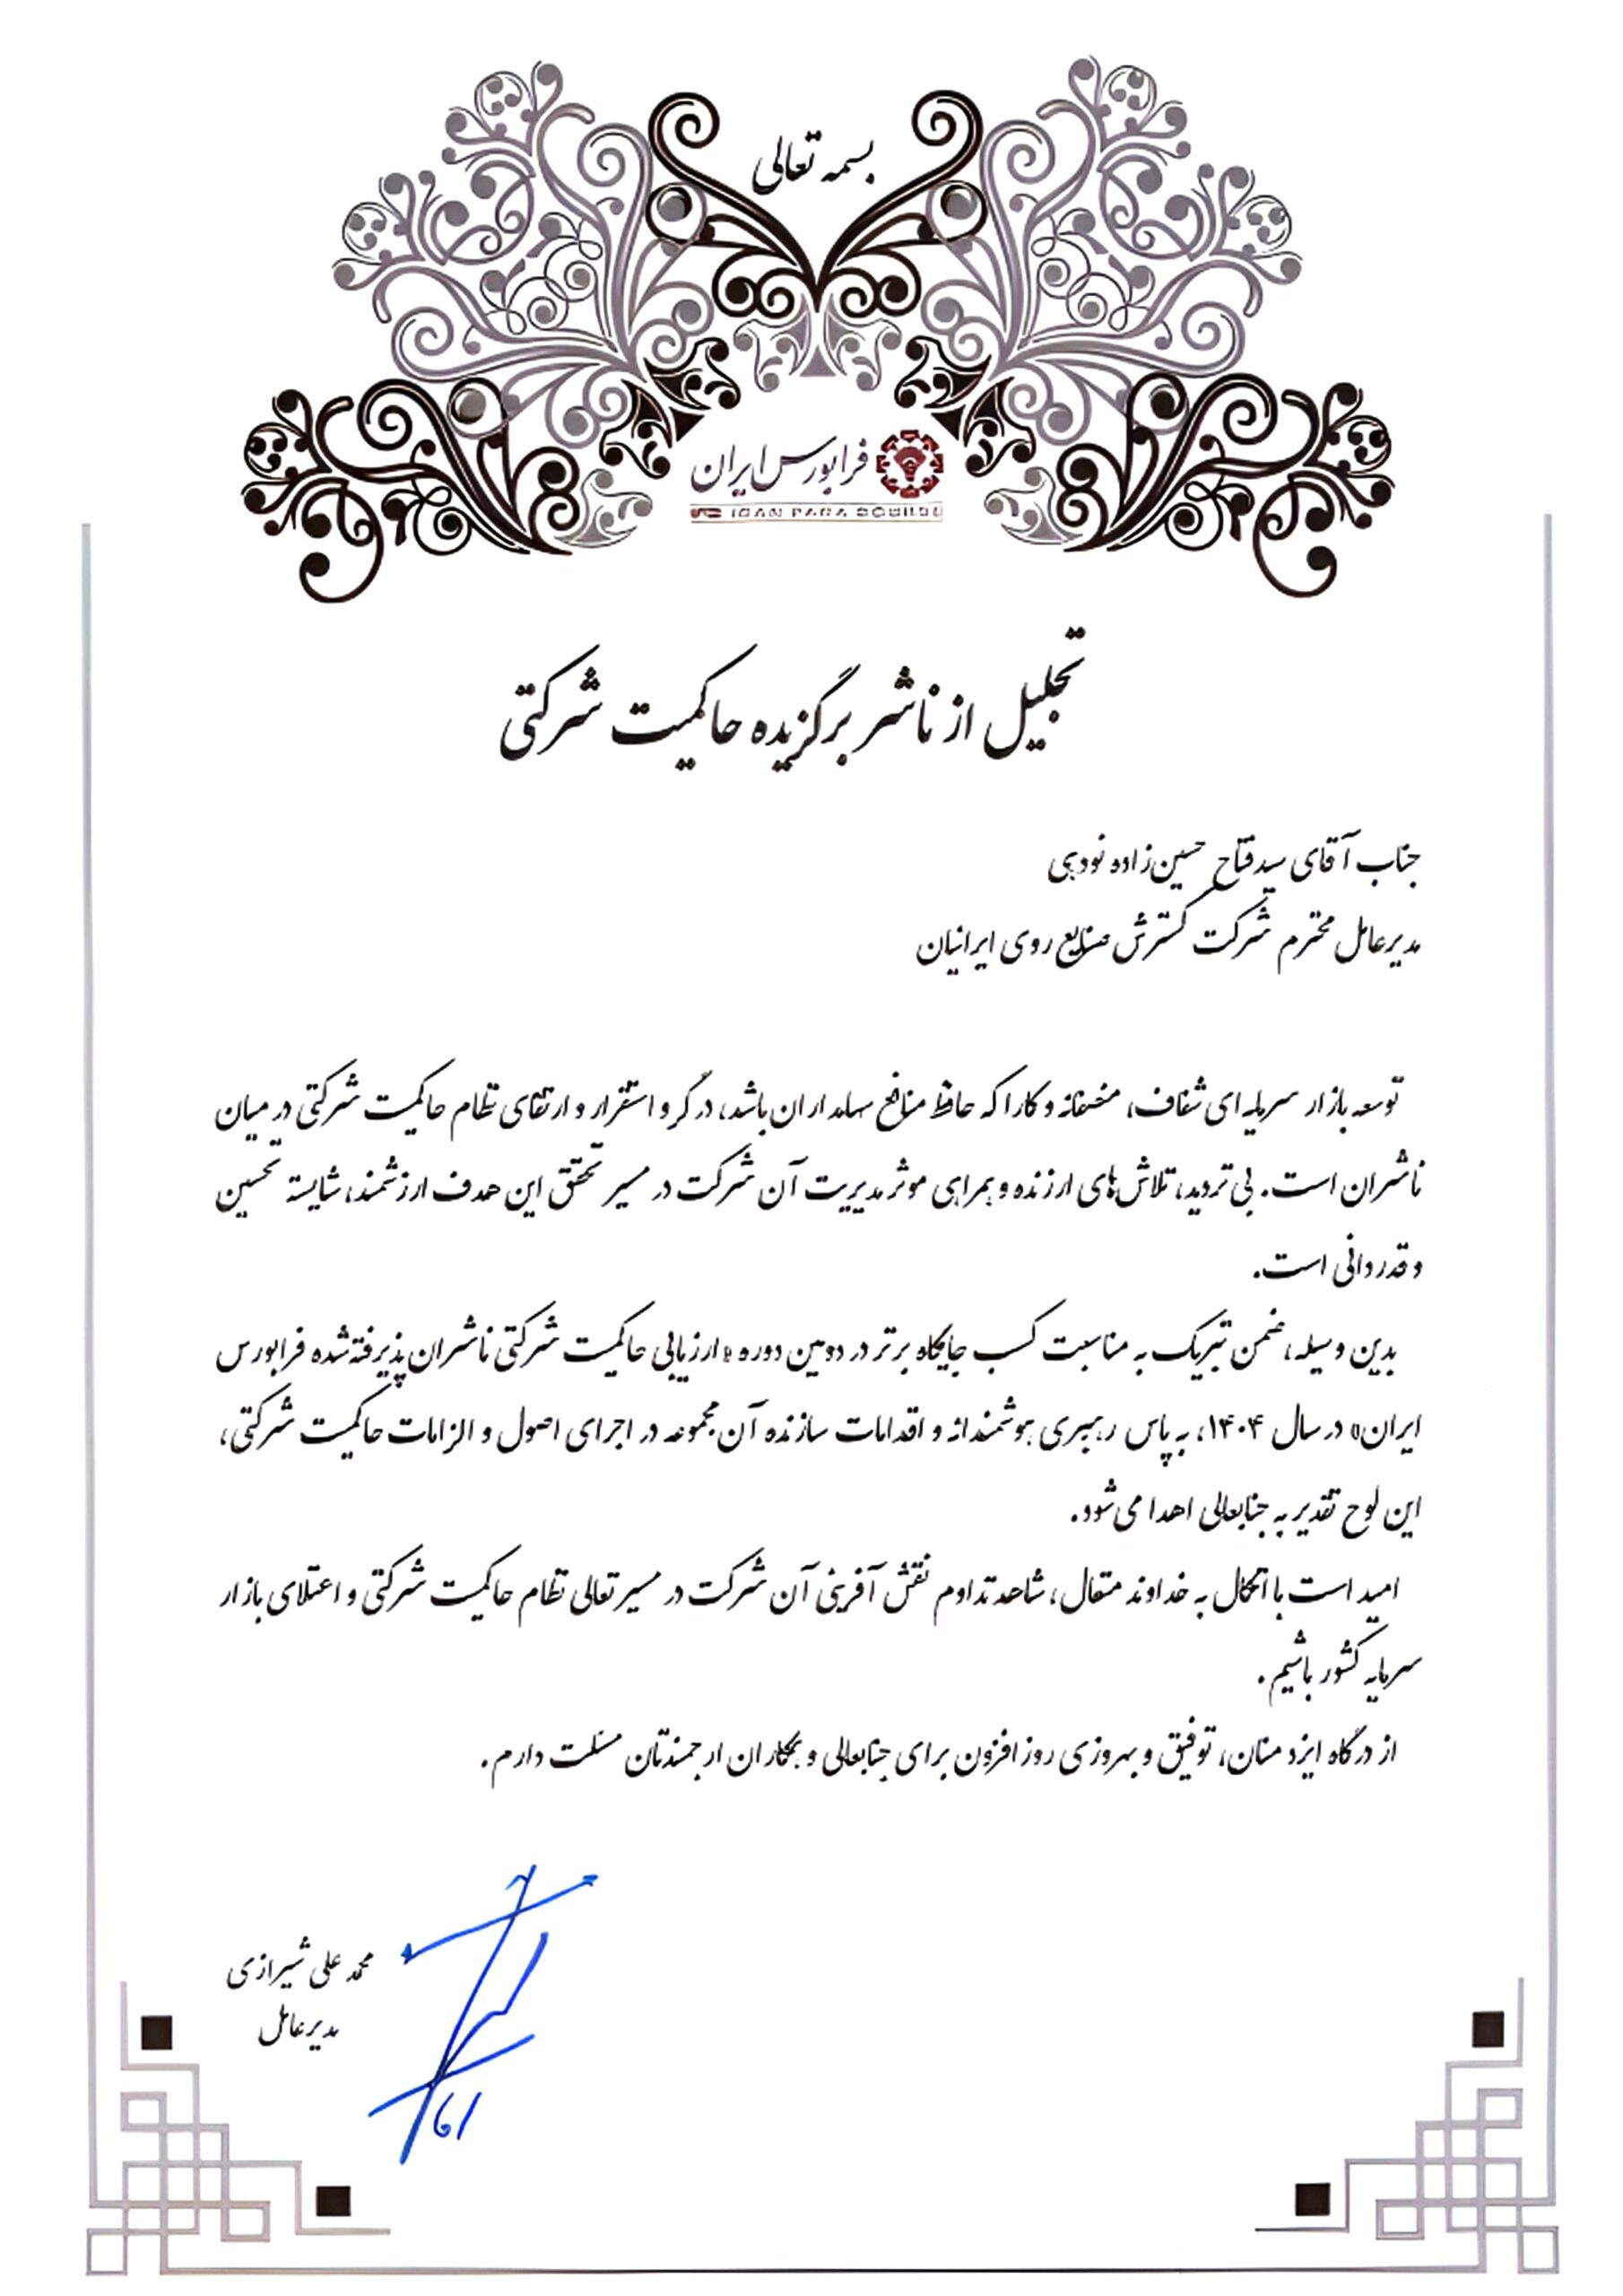 بسمه تعالی
فرابورس ایران
IRAN FARA BOURSE
تجلیل از ناشر برگزیده حاکمیت شرکتی
جناب آقای سیدفتاح حسین‌زاده نودهی
مدیرعامل محترم شرکت گسترش صنایع روی ایرانیان
توسعه بازار سرمایه‌ای شفاف، منصفانه و کارا که حافظ منافع سهامداران باشد، در گرو استقرار و ارتقای نظام حاکمیت شرکتی در میان
ناشران است. بی‌تردید، تلاش‌های ارزنده و همراهی موثر مدیریت آن شرکت در مسیر تحقق این هدف ارزشمند، شایسته تحسین
و قدردانی است.
بدین وسیله، ضمن تبریک به مناسبت کسب جایگاه برتر در دومین دوره «ارزیابی حاکمیت شرکتی ناشران پذیرفته‌شده فرابورس
ایران» در سال ۱۴۰۴، به پاس رهبری هوشمندانه و اقدامات سازنده آن مجموعه در اجرای اصول و الزامات حاکمیت شرکتی،
این لوح تقدیر به جنابعالی اهدا می‌شود.
امید است با اتکال به خداوند متعال، شاهد تداوم نقش آفرینی آن شرکت در مسیر تعالی نظام حاکمیت شرکتی و اعتلای بازار
سرمایه کشور باشیم.
از درگاه ایزد منان، توفیق و بهروزی روزافزون برای جنابعالی و همکاران ارجمندتان مسئلت دارم.
محمد علی شیرازی
مدیرعامل